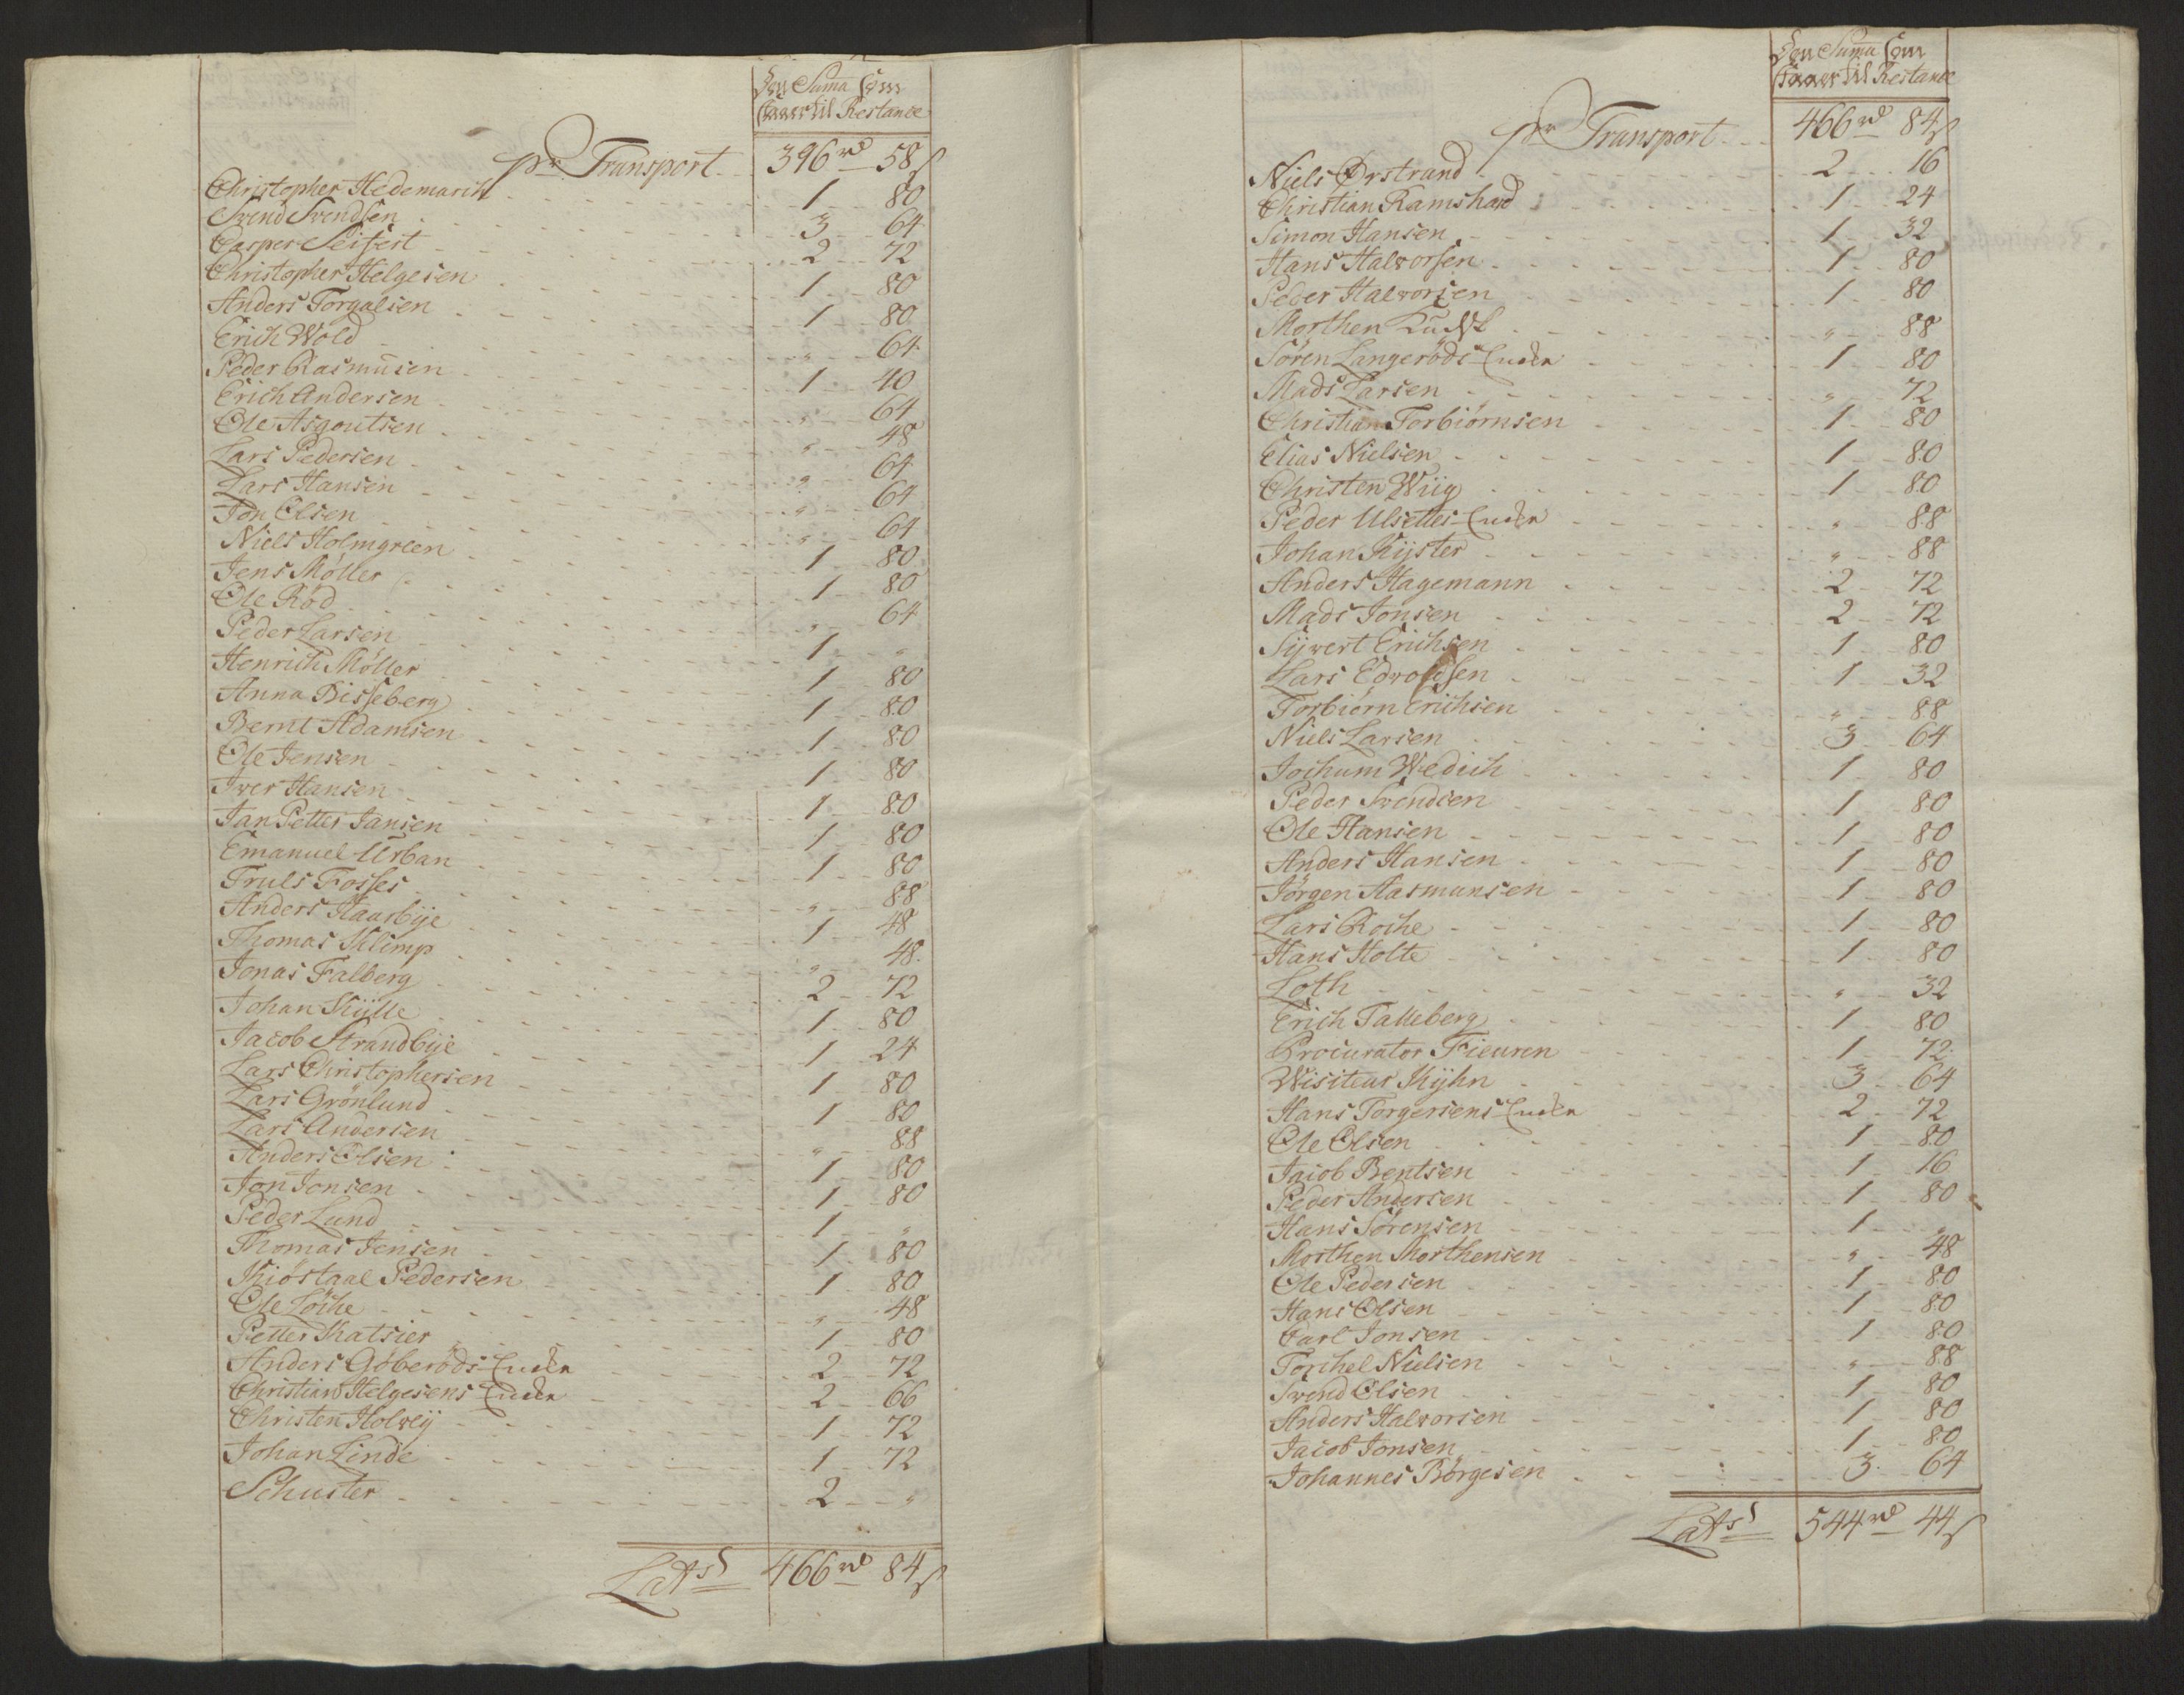 Den Suma som
staaer til Restance
pr Transport 396 rd 58 s
Christopher Hedemarck 1 80
Svend Svendsen 3 64
Casper Seifert 2 72
Christopher Helgesen 1 80
Anders Torgalsen 1 80
Erich Wold " 64
Peder Rasmusen 1 40
Erich Andersen " 64
Ole Asgoutsen " 48
Lars Pedersen " 64
Lars Hansen " 64
Jon Olsen " 64
Niels Holmgreen 1 80
Jens Möller 1 80
Ole Röd " 64
Peder Larsen 1 "
Henrich Möller 1 80
Anna Bisseberg 1 80
Bernt Adamsen 1 80
Ole Jensen 1 80
Iver Hansen 1 80
Jan Petter Jansen 1 80
Emanuel Urban 1 80
Truls Fosses " 88
Anders Haasbÿe 1 48
Thomas Klimp " 48
Jonas Falberg 2 72
Johan Kÿlle 1 80
Jacob Strandbÿe 1 24
Lars Christophersen 1 80
Lars Grönlund 1 80
Lars Andersen " 88
Anders Olsen 1 80
Jon Jonsen 1 80
Peder Lund 1 "
Thomas Jensen 1 80
Kiöstaal Pedersen 1 80
Ole Löche " 48
Petter Katsier 1 80
Anders Göberöds Encke 2 72
Christian Helgesens Encke 2 66
Christen Holveÿ 1 72
Johan Linde 1 72
Schuster 2 "
Latus 466 rd 84 s
Den Suma som
staaer til Restance
pr Transport 466 rd 84 s
Niels Ørstrand 2 16
Christian Ramshard 1 24
Simon Hansen 1 32
Hans Halvorsen 1 80
Peder Halvorsen 1 80
Morthen " 88
Sören Langeröds Encke 1 80
Mads Larsen " 72
Christian Torbiörnsen 1 80
Elias Nielsen 1 80
Christen Wiig 1 80
Peder Ulsettes Encke " 88
Johan Kÿster " 88
Anders Hagemann 2 72
Mads Jonsen 2 72
Sÿvert Erichsen 1 80
Lars 1 32
Torbiörn Erichsen " 88
Niels Larsen 3 64
Jochum Wedich 1 80
Peder Svendsen 1 80
Ole Hansen 1 80
Anders Hansen 1 80
Jörgen Aasmunsen 1 80
Lars Roche 1 80
Hans Holte 1 80
Loth " 32
Erich Talleberg 1 80
Procurator Fieuren 1 72
Wisiteur Kÿhn 3 64
Hans Torgersens Encke 2 72
Ole Olsen 1 80
Jacob Bentsen 1 16
Peder Andersen 1 80
Hans Sörensen 1 "
Morthen Morthensen " 48
Ole Pedersen 1 80
Hans Olsen 1 80
Carl Jonsen 1 80
Torchel Nielsen " 88
Svend Olsen 1 80
Anders Halvorsen 1 80
Jacob Jonsen 1 80
Johannes Börgesen 3 64
Latus 544 rd 44 s